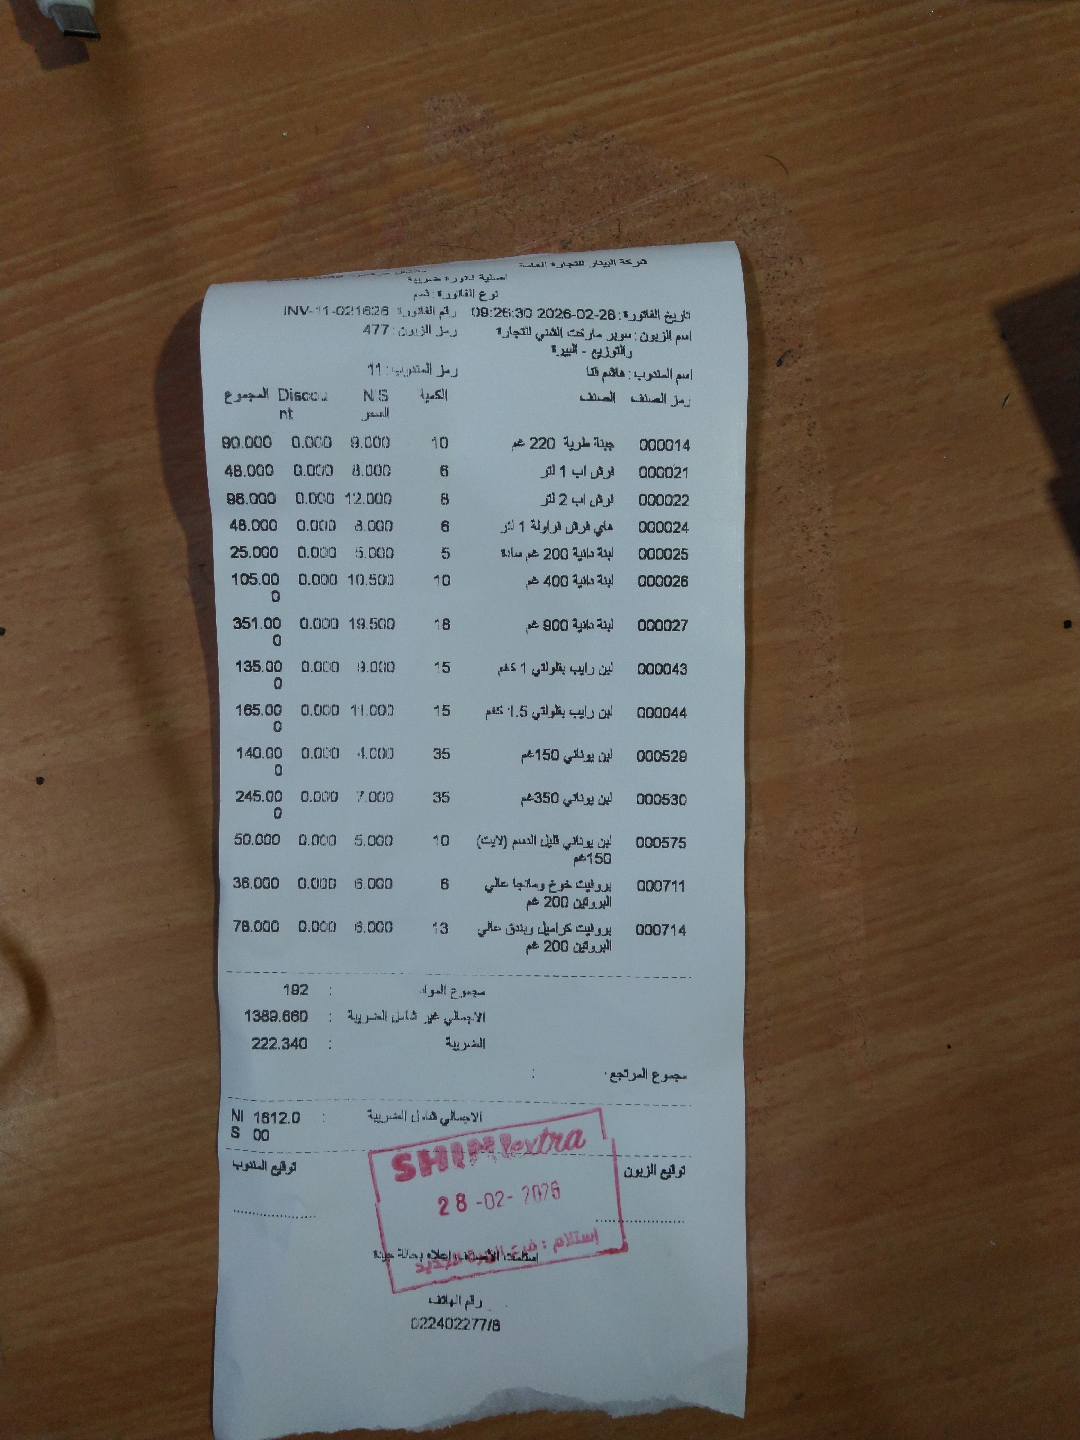 شركة البينار للتجارة العامة
اصلية فاتورة ضريبية
نوع الفاتورة: ذمم
تاريخ الفاتورة: 2026-02-28 09:26:30 رقم الفاتورة: INV-11-021628
اسم الزبون: سوبر ماركت الشني للتجارة والتوزيع - البيرة رمز الزبون: 477
اسم المندوب: هاشم قنا رمز المندوب: 11
رمز الصنف الصنف الكمية NIS السعر Discount المجموع
000014 جبنة طرية 220 غم 10 9.000 0.000 90.000
000021 فرش اب 1 لتر 6 8.000 0.000 48.000
000022 فرش اب 2 لتر 8 12.000 0.000 96.000
000024 هاي فرش فراولة 1 لتر 6 8.000 0.000 48.000
000025 لبنة دانية 200 غم سادة 5 5.000 0.000 25.000
000026 لبنة دانية 400 غم 10 10.500 0.000 105.000
000027 لبنة دانية 900 غم 18 19.500 0.000 351.000
000043 لبن رايب بقلولتي 1 كغم 15 9.000 0.000 135.000
000044 لبن رايب بقلولتي 1.5 كغم 15 11.000 0.000 165.000
000529 لبن يوناني 150غم 35 4.000 0.000 140.000
000530 لبن يوناني 350غم 35 7.000 0.000 245.000
000575 لبن يوناني قليل الدسم (لايت) 150غم 10 5.000 0.000 50.000
000711 بروفيت خوخ ومانجا عالي البروتين 200 غم 6 6.000 0.000 36.000
000714 بروفيت كراميل وبندق عالي البروتين 200 غم 13 6.000 0.000 78.000
مجموع المواد : 192
الاجمالي غير شامل الضريبة : 1389.660
الضريبة : 222.340
مجموع المرتجع :
الاجمالي شامل الضريبة : 1612.000 NIS
توقيع الزبون توقيع المندوب
SHINI extra
28-02-2026
إستلام : فرع البيرة الجديد
استلمت اعلاه بحالة جيدة
رقم الهاتف
022402277/8